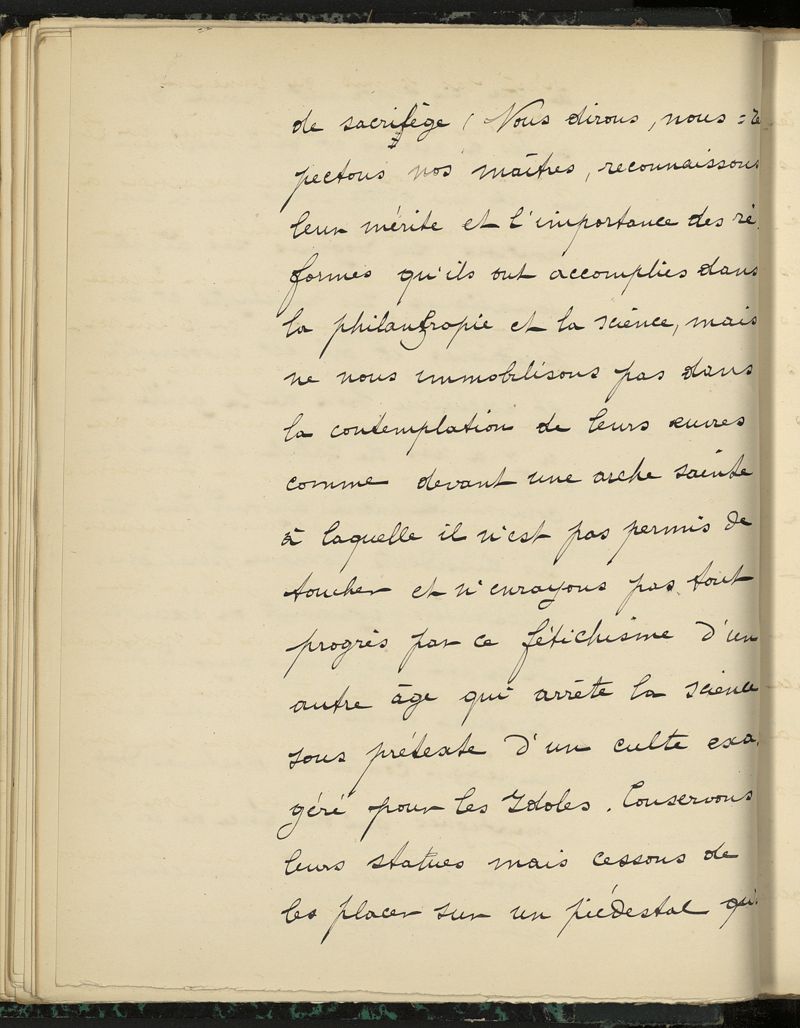 de sacrifège ! Nous dirons, nous = re
pectons nos maîtres, reconnaissons
leur mérite et l'importance des ré-
formes qu'ils ont accomplies dans
la philantropie et la science, mais
ne nous immobilisons pas dans
la contemplation de leurs œuvres
comme devant une arche sainte
à laquelle il n'est pas permis de
toucher et n'enrayons pas tout
progrès par ce fétichisme d'un
autre âge qui arrête la science
sous prétexte d'un culte exa-
géré pour les Idoles. Conservons
leurs statues mais cessons de
les placer sur un piédestal qui